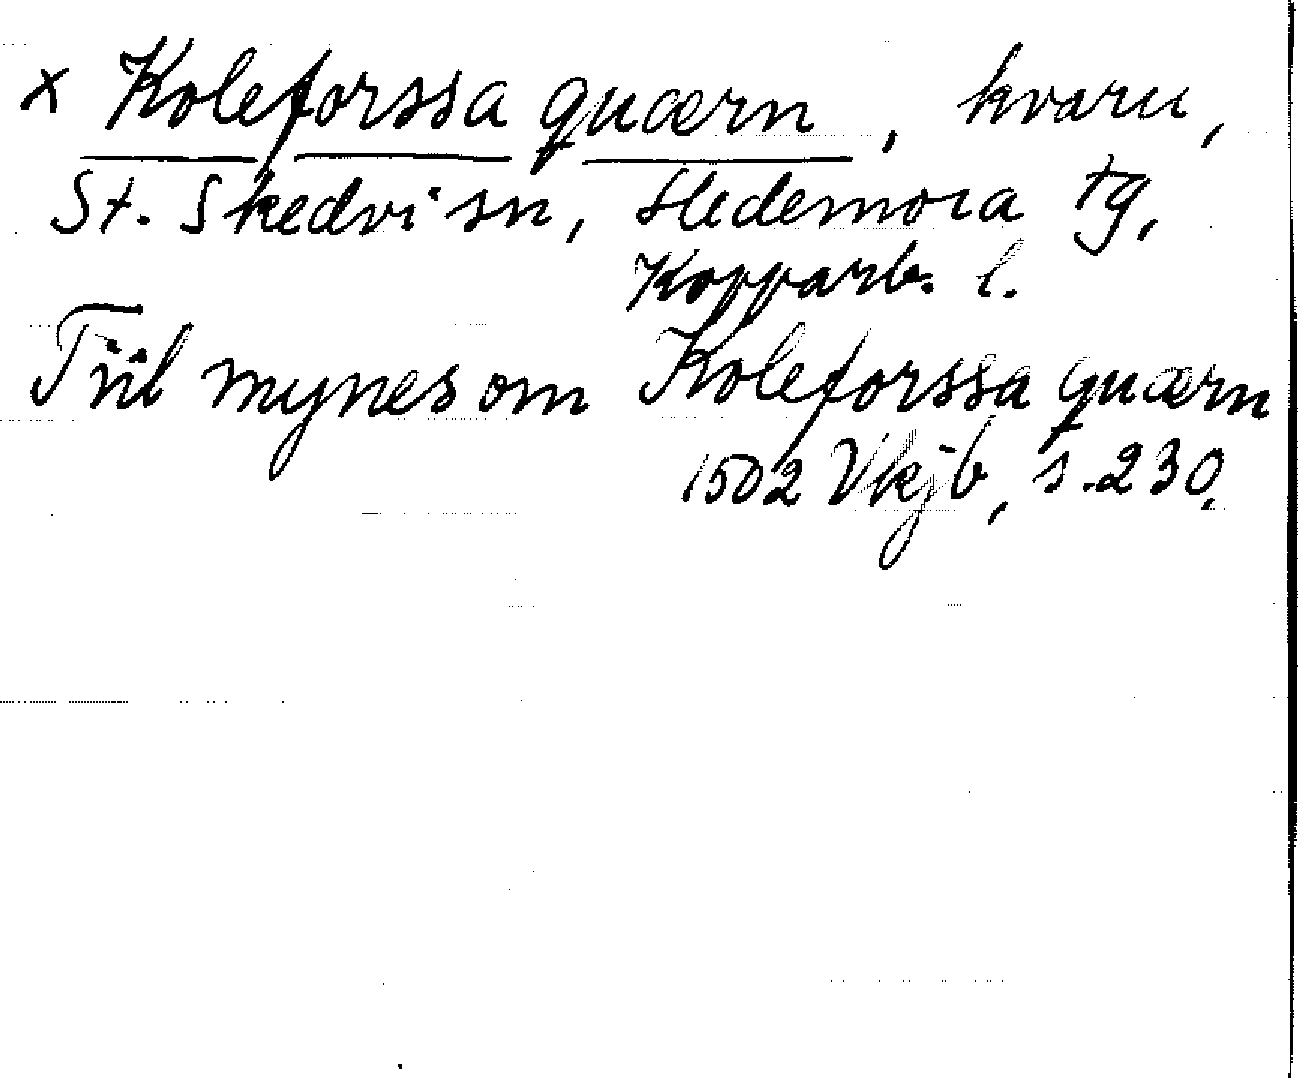 x Koleforssa quærn, kvarn,
St. Skedvi sn, Hedemora tg,
Kopparb. l.
Tiil mynes om Koleforssa quærn
1502 Vkjb, s. 230.